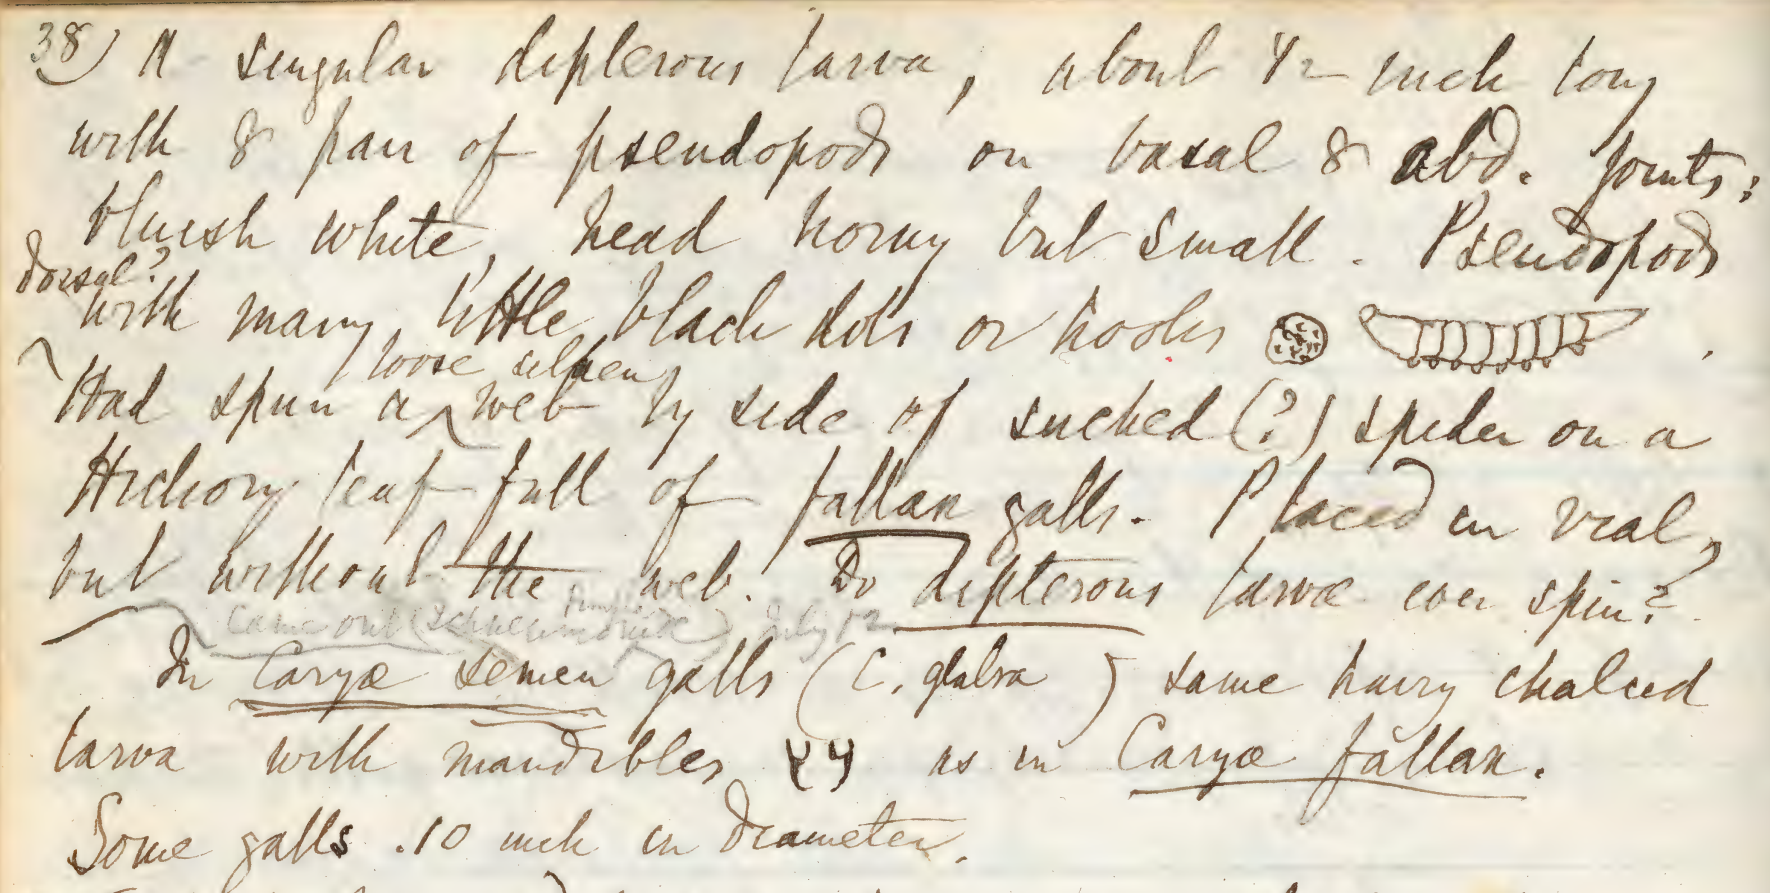 38) A singular dipterous larva, about 1/2 inch long
with 8 pair of pseudopods on basal 8 abd. joints;
bluish white, head horny but small. Pseudopods
dorsal?
with many little black dots or hooks
loose silken
Had spun a web by side of sucked (?) spider on a
Hickory leaf full of fallax galls. Placed in vial,
but without the web. Do dipterous larvæ ever spin?
Came out July 12
In Caryæ semen galls (C. glabra) same hairy chalcid
larva with mandibles as in Caryæ fallax.
Some galls .10 inch in diameter.